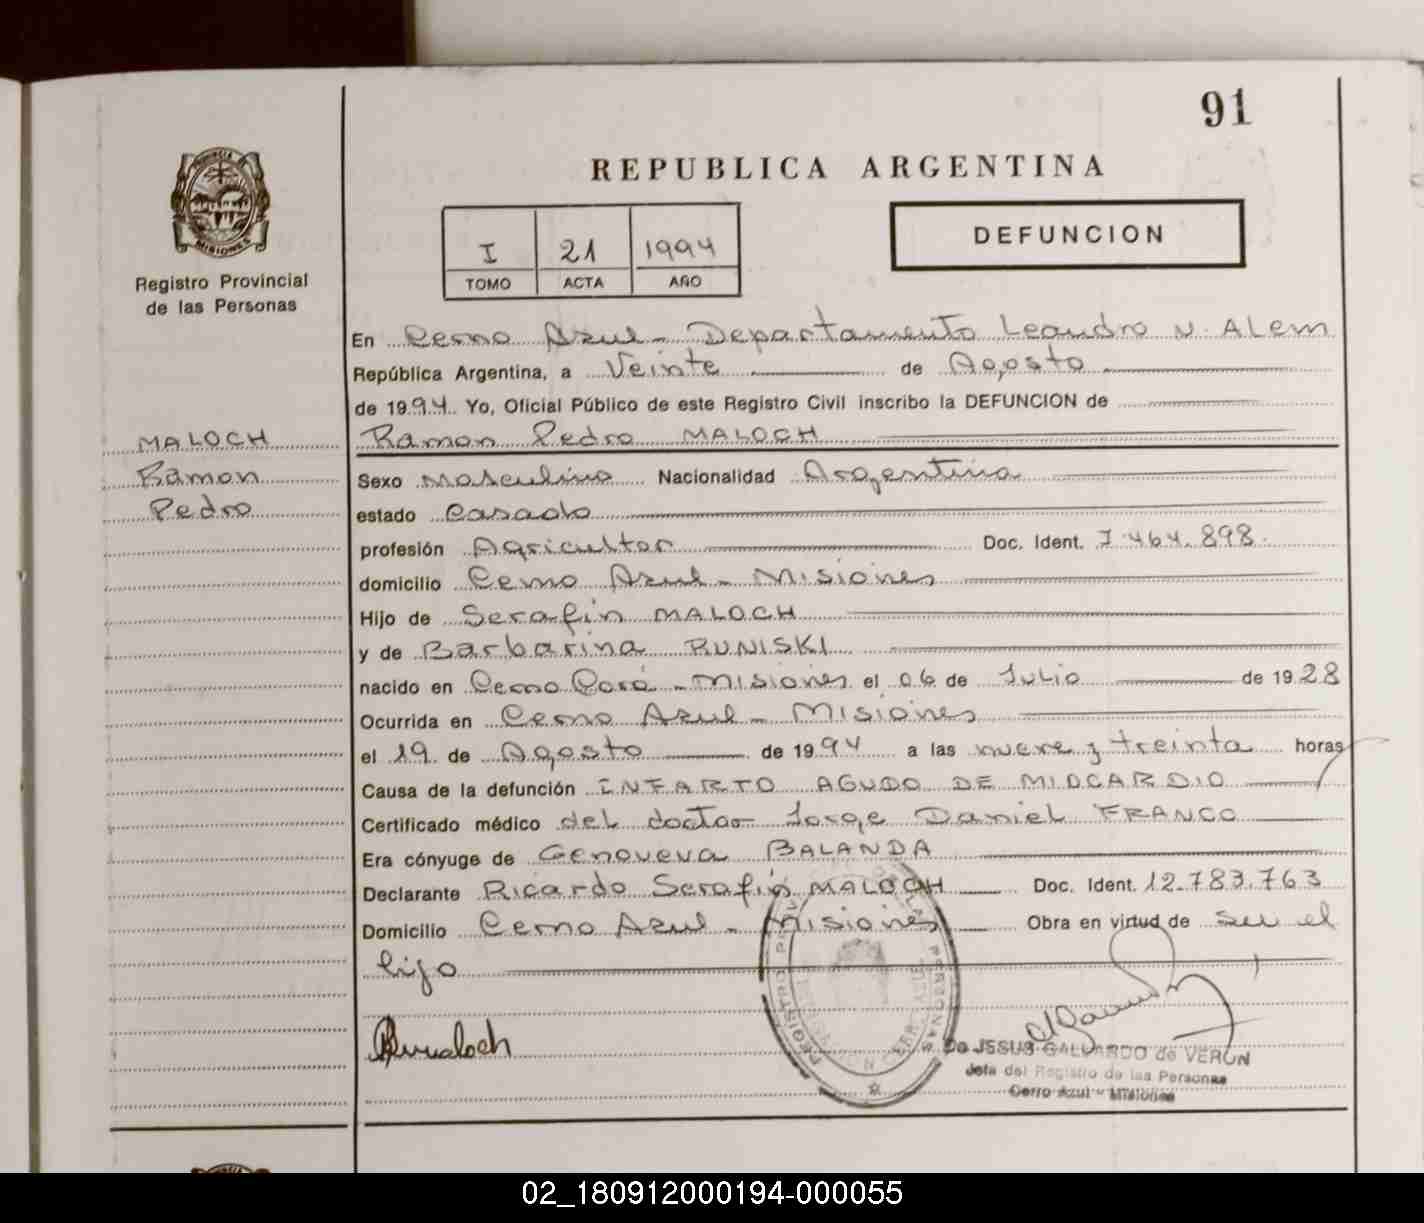 91
REPUBLICA ARGENTINA
PROVINCIA DE
MISIONES
Registro Provincial
de las Personas
I 21 1994
TOMO ACTA AÑO
DEFUNCION
En Cerro Azul - Departamento Leandro N. ALEM
República Argentina, a Veinte de Agosto
de 1994 Yo, Oficial Público de este Registro Civil inscribo la DEFUNCION de
Ramon Pedro MALOCH
MALOCH
Ramon
Pedro
Sexo Masculino Nacionalidad Argentina
estado Casado
profesión Agricultor Doc. Ident. 7.464.898.
domicilio Cerro Azul - Misiones
Hijo de Serafin MALOCH
y de Barbarina RUNISKI
nacido en Cerro Corá - Misiones el 06 de Julio de 1928
Ocurrida en Cerro Azul - Misiones
el 19 de Agosto de 1994 a las nueve y treinta horas
Causa de la defunción INFARTO AGUDO DE MIOCARDIO
Certificado médico del doctor Jorge Daniel FRANCO
Era cónyuge de Genoveva BALANDA
Declarante Ricardo Serafin MALOCH Doc. Ident. 12.783.763
Domicilio Cerro Azul - Misiones Obra en virtud de ser el
hijo
REGISTRO DE LAS PERSONAS
De JESUS GALVARDO de VERON
Jefa del Registro de las Personas
Cerro Azul - Misiones
02_180912000194-000055